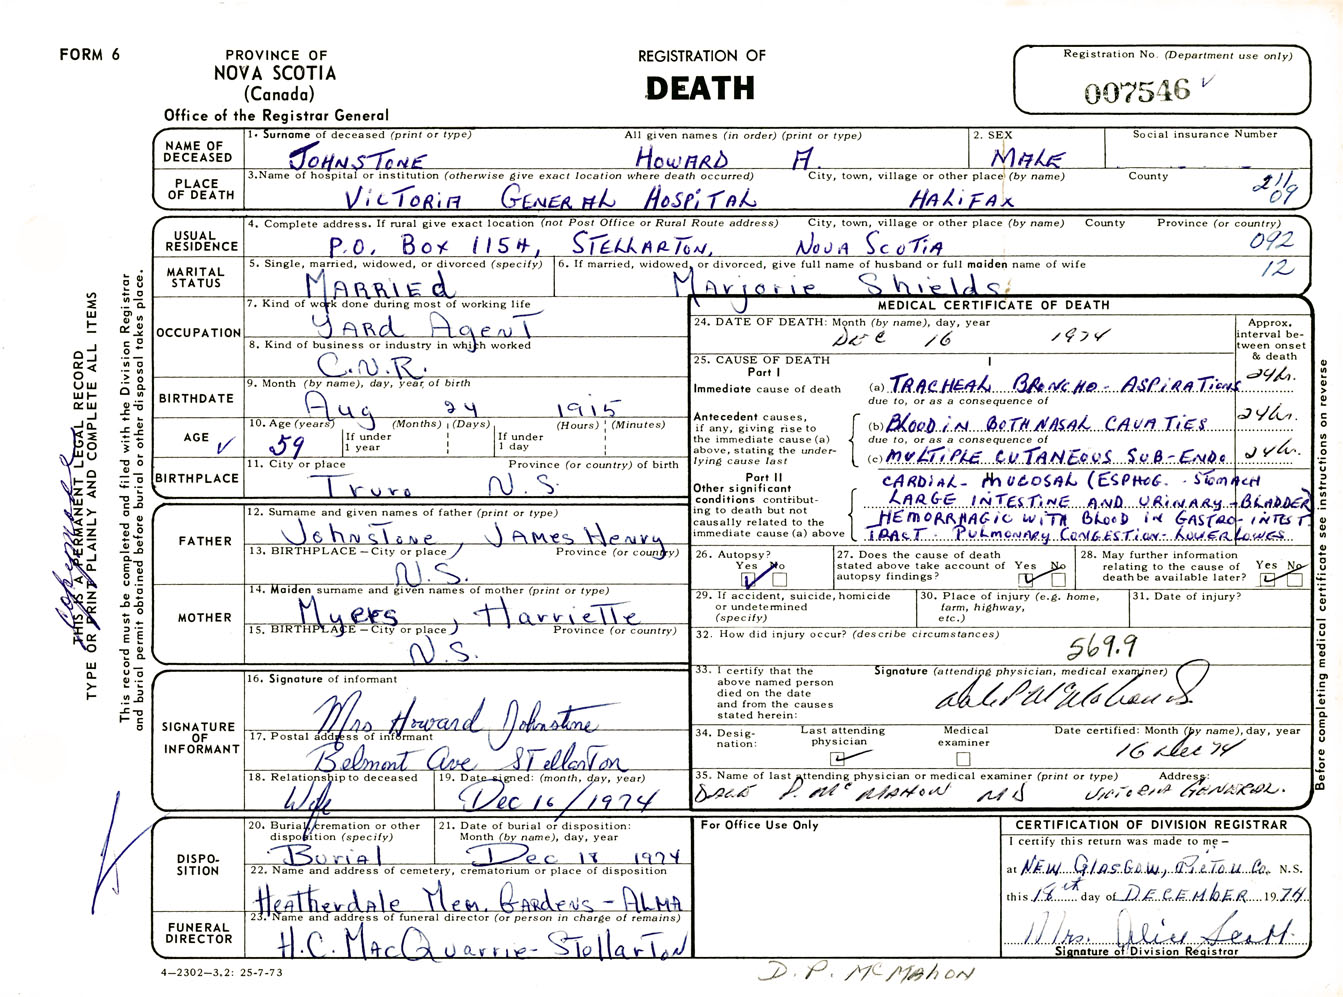 FORM 6
PROVINCE OF
NOVA SCOTIA
(Canada)
Office of the Registrar General
REGISTRATION OF
DEATH
Registration No. (Department use only)
007546 ✓
NAME OF DECEASED
1. Surname of deceased (print or type) All given names (in order) (print or type)
JOHNSTONE HOWARD A.
2. SEX
MALE
Social insurance Number
PLACE OF DEATH
3. Name of hospital or institution (otherwise give exact location where death occurred) City, town, village or other place (by name) County
VICTORIA GENERAL HOSPITAL HALIFAX
211
09
USUAL RESIDENCE
4. Complete address. If rural give exact location (not Post Office or Rural Route address) City, town, village or other place (by name) County Province (or country)
P.O. BOX 1154, STELLARTON, NOVA SCOTIA
092
12
MARITAL STATUS
5. Single, married, widowed, or divorced (specify)
MARRIED
6. If married, widowed, or divorced, give full name of husband or full maiden name of wife
Marjorie Shields
OCCUPATION
7. Kind of work done during most of working life
YARD Agent
8. Kind of business or industry in which worked
C.N.R.
BIRTHDATE
9. Month (by name), day, year of birth
Aug 24 1915
AGE ✓
10. Age (years) (Months) (Days) (Hours) (Minutes)
59
If under 1 year
If under 1 day
BIRTHPLACE
11. City or place Province (or country) of birth
Truro N.S.
FATHER
12. Surname and given names of father (print or type)
Johnstone, JAMES Henry
13. BIRTHPLACE – City or place Province (or country)
N.S.
MOTHER
14. Maiden surname and given names of mother (print or type)
Myers, Harriette
15. BIRTHPLACE – City or place) Province (or country)
N.S.
SIGNATURE OF INFORMANT
16. Signature of informant
Mrs Howard Johnstone
17. Postal address of informant
Belmont Ave Stellarton
18. Relationship to deceased
Wife
19. Date signed: (month, day, year)
Dec 16/1974
DISPO-
SITION
20. Burial, cremation or other disposition (specify)
Burial
21. Date of burial or disposition: Month (by name), day, year
Dec 18 1974
22. Name and address of cemetery, crematorium or place of disposition
Heatherdale Mem. Gardens - ALMA
FUNERAL DIRECTOR
23. Name and address of funeral director (or person in charge of remains)
H.C. MacQuarrie - Stellarton
4–2302–3.2: 25-7-73
MEDICAL CERTIFICATE OF DEATH
24. DATE OF DEATH: Month (by name), day, year
DEC 16 1974
Approx. interval be-
tween onset & death
25. CAUSE OF DEATH
Part I
Immediate cause of death
(a) TRACHEAL BRONCHO-ASPIRATIONS 24hr.
due to, or as a consequence of
Antecedent causes, if any, giving rise to the immediate cause (a) above, stating the under-
lying cause last
(b) BLOOD IN BOTH NASAL CAVATIES 24hr.
due to, or as a consequence of
(c) MULTIPLE CUTANEOUS SUB-ENDO 24hr.
Part II
Other significant conditions contribut-
ing to death but not causally related to the immediate cause (a) above
CARDIAL- MUCOSAL (ESPHOG. - STOMACH
LARGE INTESTINE AND URINARY-BLADDER)
HEMORRHAGIC WITH BLOOD IN GASTRO-INTEST.
TRACT. PULMONARY CONGESTION-LOWER LOWES
26. Autopsy?
Yes No
✓
27. Does the cause of death stated above take account of autopsy findings?
Yes No
✓
28. May further information relating to the cause of death be available later?
Yes No
✓
29. If accident, suicide, homicide or undetermined (specify)
30. Place of injury (e.g. home, farm, highway, etc.)
31. Date of injury?
32. How did injury occur? (describe circumstances)
569.9
33. I certify that the above named person died on the date and from the causes stated herein:
Signature (attending physician, medical examiner)
34. Desig-
nation:
Last attending physician
✓
Medical examiner
Date certified: Month (by name), day, year
16 Dec 74
35. Name of last attending physician or medical examiner (print or type) Address:
DALE P. McMAHON MD VICTORIA GENERAL.
For Office Use Only
CERTIFICATION OF DIVISION REGISTRAR
I certify this return was made to me –
at NEW GLASGOW, PICTOU Co. N.S.
this 18th day of DECEMBER 1974
Mrs. Alice Scott
Signature of Division Registrar
D. P. McMAHON
THIS IS A PERMANENT LEGAL RECORD
TYPE OR PRINT PLAINLY AND COMPLETE ALL ITEMS
This record must be completed and filed with the Division Registrar
and burial permit obtained before burial or other disposal takes place.
Before completing medical certificate see instructions on reverse